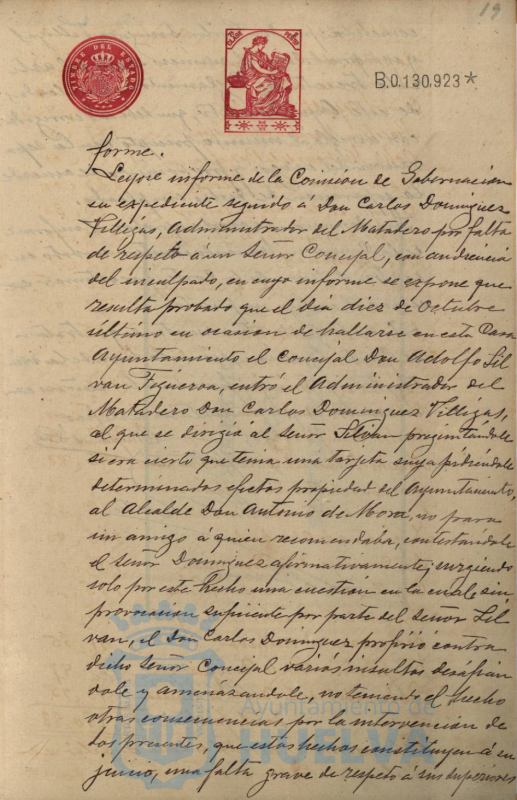 19
TIMBRE DEL ESTADO
B.0.130.923*
forme.
Leyóse informe de la Comision de Gobernacion
en expediente seguido á Don Carlos Dominguez
Villegas, Administrador del Matadero por falta
de respeto á un Señor Concejal, con audiencia
del inculpado, en cuyo informe se expone que
resulta probado que el dia diez de Octubre
último en ocasion de hallarse en esta Casa
Ayuntamiento el Concejal Don Adolfo Sil
van Figueroa, entró el Administrador del
Matadero Don Carlos Dominguez Villegas,
al que se dirigió el Señor Silvan preguntándole
si era cierto que tenia una tarjeta suya pidiéndole
determinados efectos propiedad del Ayuntamiento,
al Alcalde Don Antonio de Mora, no para
un amigo á quien recomendaba, contestandole
el señor Dominguez afirmativamente; surgiendo
solo por este hecho una cuestión en la cual sin
provocacion suficiente por parte del señor Sil
van, el Don Carlos Dominguez profirió contra
dicho Señor Concejal varios insultos desáfian
dole y amenázandole, no teniendo el hecho
otras consecuencias por la intervencion de
los presentes, que estos hechos constituyen á su
juicio, una falta grave de respeto á sus superiores
Ayuntamiento de
HUELVA